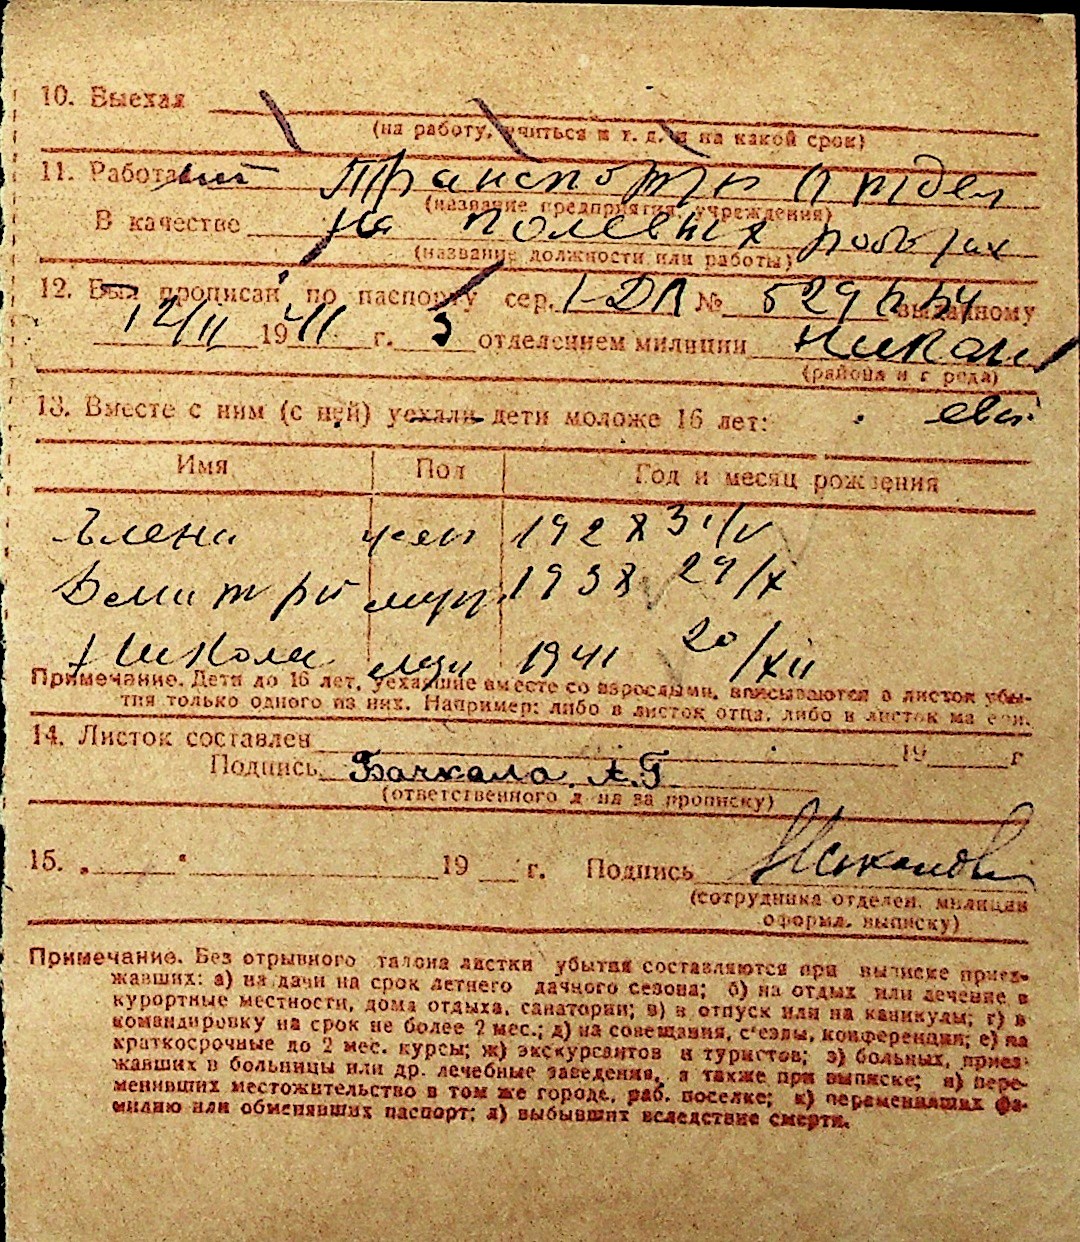 10. Выехал
(на работу, учиться и т. д. и на какой срок)
11. Работа Транспортн Отдел
(название предприятия, учреждения)
В качестве на полевых работах
(название должности или работы)
12. Был прописан по паспорту сер. I-ДЛ № выданному
12/II 1941 г. 3 отделением милиции
(района и города)
13. Вместе с ним (с ней) уехали дети моложе 16 лет:
Имя Пол Год и месяц рождения
Елена жен 1928 31/V
Дмитрий муж 1938 29/X
Николай муж 1941 20/XII
Примечание. Дети до 16 лет, уехавшие вместе со взрослыми, вписываются в листок убы-
тия только одного из них. Например: либо в листок отца, либо в листок матери.
14. Листок составлен 19 г
Подпись Бачкала А.Г
(ответственного л-ца за прописку)
15. „ “ 19 г. Подпись
(сотрудника отделен. милиции
оформл. выписку)
Примечание. Без отрывного талона листки убытия составляются при выписке приез-
жавших: а) на дачи на срок летнего дачного сезона; б) на отдых или лечение в
курортные местности, дома отдыха, санатории; в) в отпуск или на каникулы; г) в
командировку на срок не более 2 мес.; д) на совещания, с'езды, конференции; е) на
краткосрочные до 2 мес. курсы; ж) экскурсантов и туристов; з) больных, приез-
жавших в больницы или др. лечебные заведения, а также при выписке; и) пере-
менивших местожительство в том же городе, раб. поселке; к) переменивших фа-
милию или обменявших паспорт; л) выбывших вследствие смерти.